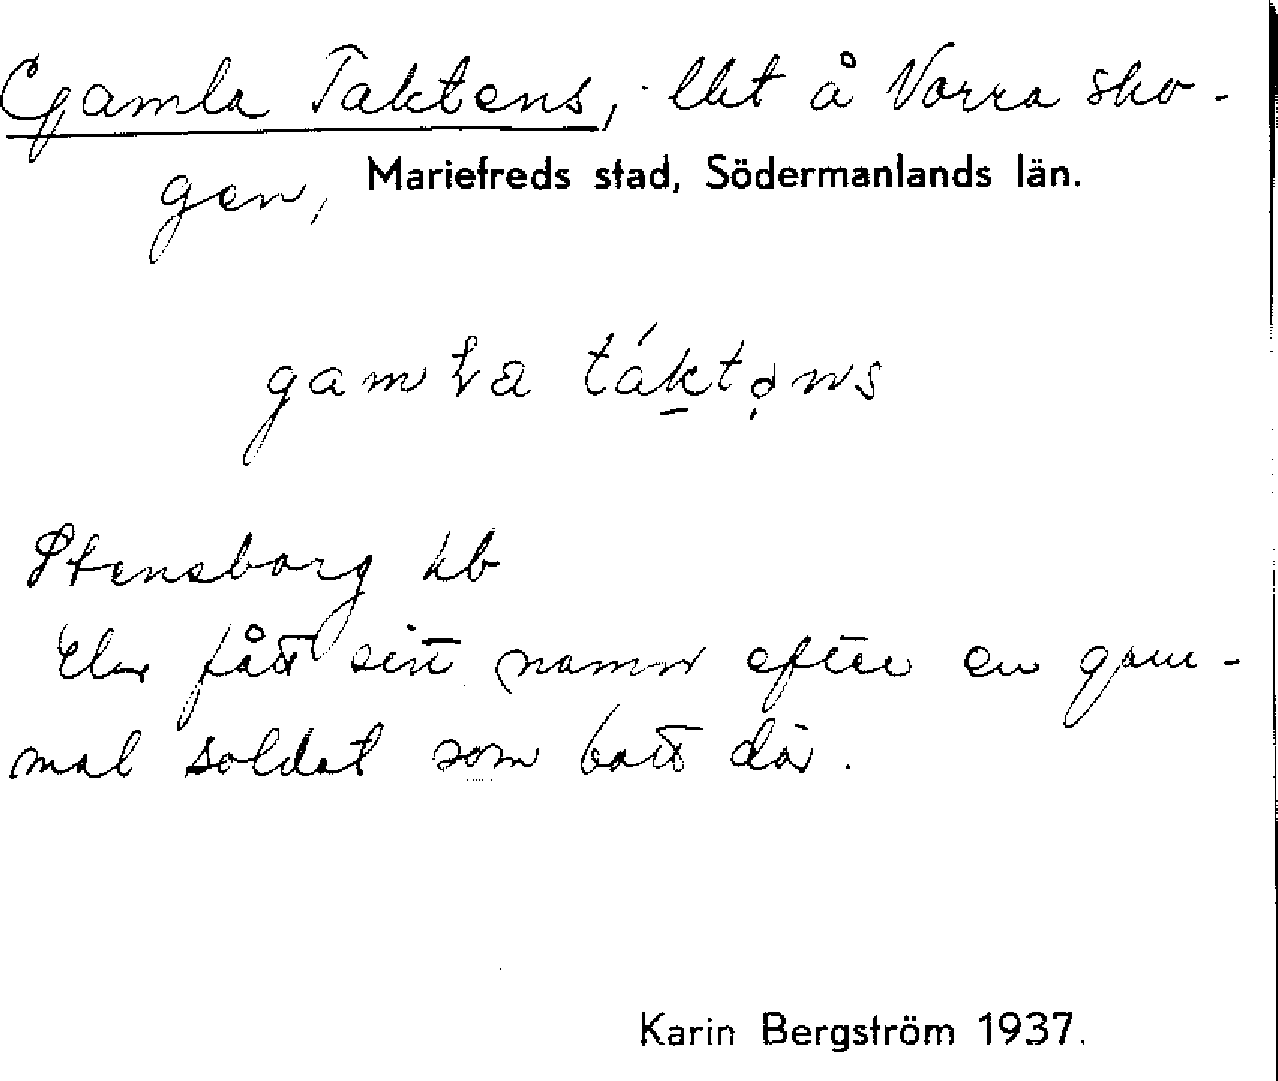 Gamla Taktens, lht å Norra sko-
gen, Mariefreds stad, Södermanlands län.
gamɫa táktəns
Stensborg kb
Har fått sitt namn efter en gam-
mal soldat som bott där.
Karin Bergström 1937.